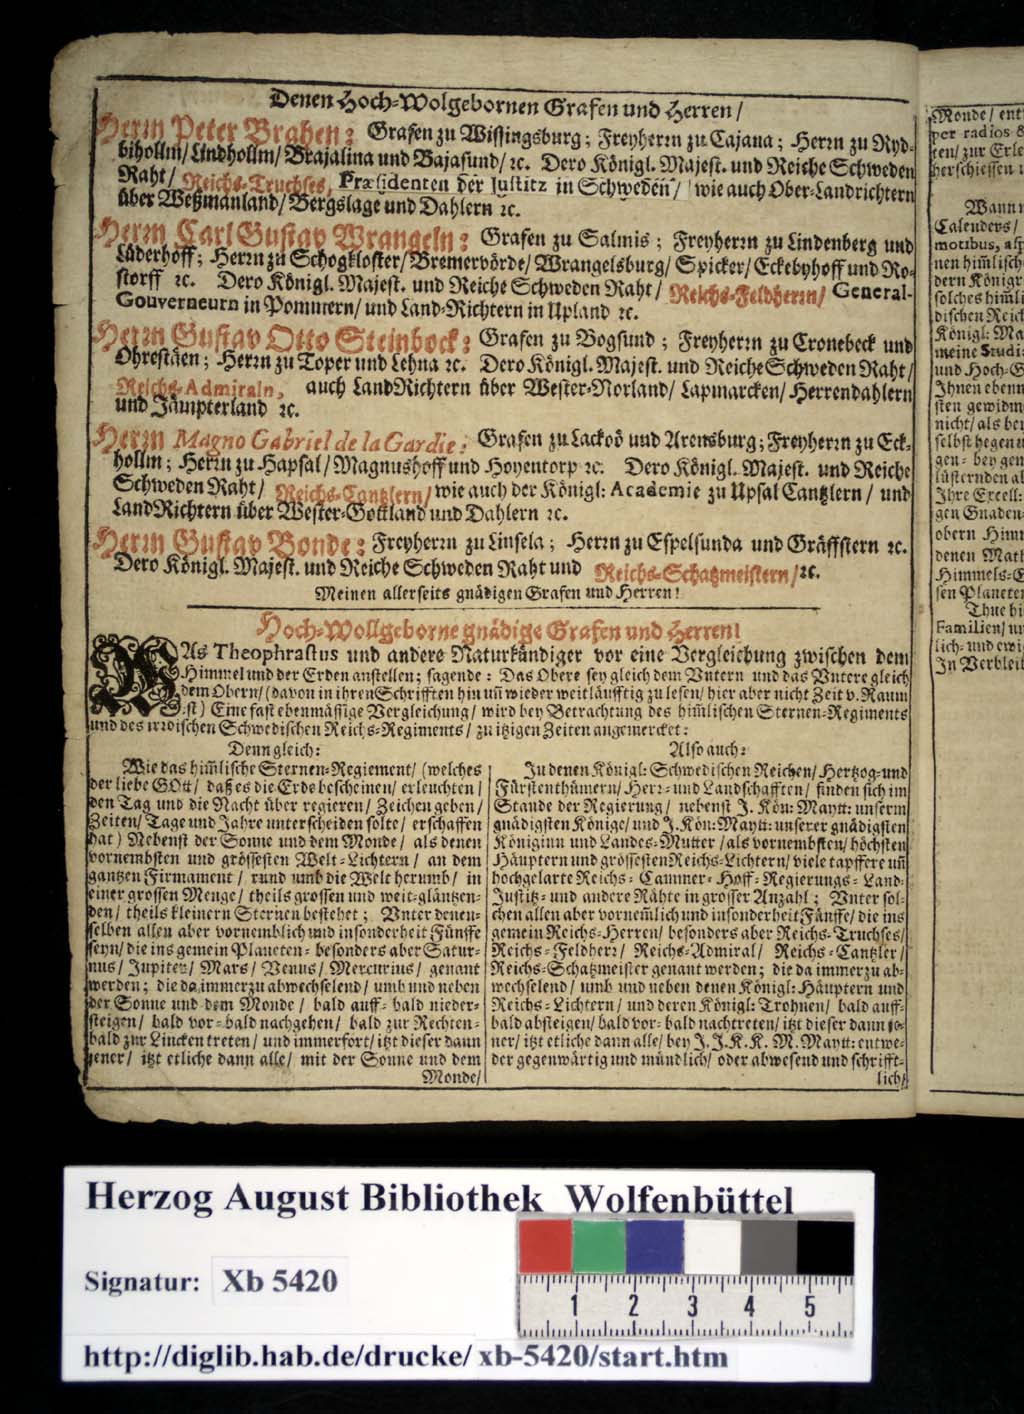 Denen Hoch-Wolgebornen Grafen und Herren/
Herrn Peter Brahen: Grafen zu Wissingsburg; Freyherrn zu Cajana; Herrn zu Ryd-
bihollm/ Lindhollm/ Brajalina und Bajasund/ ꝛc. Dero Königl. Majest. und Reiche Schweden
Raht/ Reichs-Truchses, Præsidenten der Justitz in Schweden/ wie auch Ober-Landrichtern
über Weßmanland/ Bergslage und Dahlern ꝛc.
Herrn Carl Gustav Wrangeln: Grafen zu Salmis; Freyherrn zu Lindenberg und
Lüderhoff; Herrn zu Schogkloster/ Bremervörde/ Wrangelsburg/ Spicker/ Eckebyhoff und Ro-
storff ꝛc. Dero Königl. Majest. und Reiche Schweden Raht/ Reichs-Feldherrn/ General-
Gouverneurn in Pommern/ und Land-Richtern in Upland ꝛc.
Herrn Gustav Otto Steinbock: Grafen zu Bogsund; Freyherrn zu Cronebeck und
Ohrestäen; Herrn zu Toper und Lehna ꝛc. Dero Königl. Majest. und Reiche Schweden Raht/
Reichs-Admiraln, auch LandRichtern über Wester-Norland/ Lapmarcken/ Herrendahlern
und Jämpterland ꝛc.
Herrn Magno Gabriel de la Gardie: Grafen zu Lackoö und Arensburg; Freyherrn zu Eck-
hollm; Herrn zu Hapsal/ Magnushoff und Hoyentorp ꝛc. Dero Königl. Majest. und Reiche
Schweden Raht/ Reichs-Cantzlern/ wie auch der Königl: Academie zu Upsal Cantzlern/ und
LandRichtern über Wester-Gottland und Dahlern ꝛc.
Herrn Gustav Bonde: Freyherrn zu Linsela; Herrn zu Espelsunda und Gräffstern ꝛc.
Dero Königl. Majest. und Reiche Schweden Raht und Reichs-Schatzmeistern/ ꝛc.
Meinen allerseits gnädigen Grafen und Herren!
Hoch-Wollgeborne gnädige Grafen und Herren!
WAs Theophrastus und andere Naturkündiger vor eine Vergleichung zwischen dem
Himmel und der Erden anstellen; sagende: Das Obere sey gleich dem Untern und das Untere gleich
dem Obern/ (davon in ihren Schrifften hin uñ wieder weitläufftig zu lesen/ hier aber nicht Zeit v. Raum
ist) Eine fast ebenmässige Vergleichung/ wird bey Betrachtung des him̃lischen Sternen-Regiments
und des irrdischen Schwedischen Reichs-Regiments/ zu itzigen Zeiten angemercket:
Denn gleich:
Wie das him̃lische Sternen-Regiement/ (welches
der liebe GOtt/ daß es die Erde bescheinen/ erleuchten/
den Tag und die Nacht über regieren/ Zeichen geben/
Zeiten/ Tage und Jahre unterscheiden solte/ erschaffen
hat) Nebenst der Sonne und dem Monde/ als denen
vornembsten und grössesten Welt-Lichtern/ an dem
gantzen Firmament/ rund umb die Welt herumb/ in
einer grossen Menge/ theils grossen und weit-gläntzen-
den/ theils kleinern Sternen bestehet; Unter denen-
selben allen aber vornemblich und insonderheit Fünffe
seyn/ die ins gemein Planeten- besonders aber Satur-
nus/ Jupiter/ Mars/ Venus/ Mercurius/ genant
werden; die da immerzu abwechselend/ umb und neben
der Sonne und dem Monde/ bald auff- bald nieder-
steigen/ bald vor- bald nachgehen/ bald zur Rechten-
bald zur Lincken treten/ und immerfort/ itzt dieser dann
jener/ itzt etliche dann alle/ mit der Sonne und dem
Monde/
Also auch:
In denen Königl: Schwedischen Reichen/ Hertzog-und
Fürstenthümern/ Herr- und Landschafften/ finden sich im
Stande der Regierung/ nebenst J. Kön: Maytt: unserm
gnädigsten Könige/ und J. Kön: Maytt: unserer gnädigsten
Königinn und Landes-Mutter/ als vornembsten/ höchsten
Häuptern und grössesten Reichs-Lichtern/ viele tapffere uñ
hochgelarte Reichs- Cammer- Hoff- Regierungs- Land-
Justitz- und andere Rähte in grosser Anzahl; Unter sol-
chen allen aber vornem̃lich und insonderheit Fünffe/ die ins
gemein Reichs-Herren/ besonders aber Reichs-Truchses/
Reichs-Feldherr/ Reichs-Admiral/ Reichs-Cantzler/
Reichs-Schatzmeister genant werden; die da immerzu ab-
wechselend/ umb und neben denen Königl: Häuptern und
Reichs-Lichtern/ und deren Königl: Trohnen/ bald auff-
bald absteigen/ bald vor- bald nachtreten/ itzt dieser dann je-
ner/ itzt etliche dann alle/ bey J. J. K. K. M. Maytt: entwe-
der gegenwärtig und mündlich/ oder abwesend und schrifft-
lich/
Monde/ ent
per radios &
ten/ zur Erle
herschiessen
Wann
Calenders/
motibus, asp
nen himlisch
dern Königr
solches him̃li
dischen Reic
Königl: Ma
meine Studi
und Hoch-G
Ihnen ebenn
sten gewidm
nicht/ als be
selbst hegen u
gen- bey gen
lüsternden al
Ihre Excell:
gen Gnaden-
obern Him
denen Math
Himmels-E
sen Planeten
Thue hi
Familien/ un
lich- und ewi
In Verbleit
Herzog August Bibliothek Wolfenbüttel
Signatur: Xb 5420
1 2 3 4 5
http://diglib.hab.de/drucke/ xb-5420/start.htm